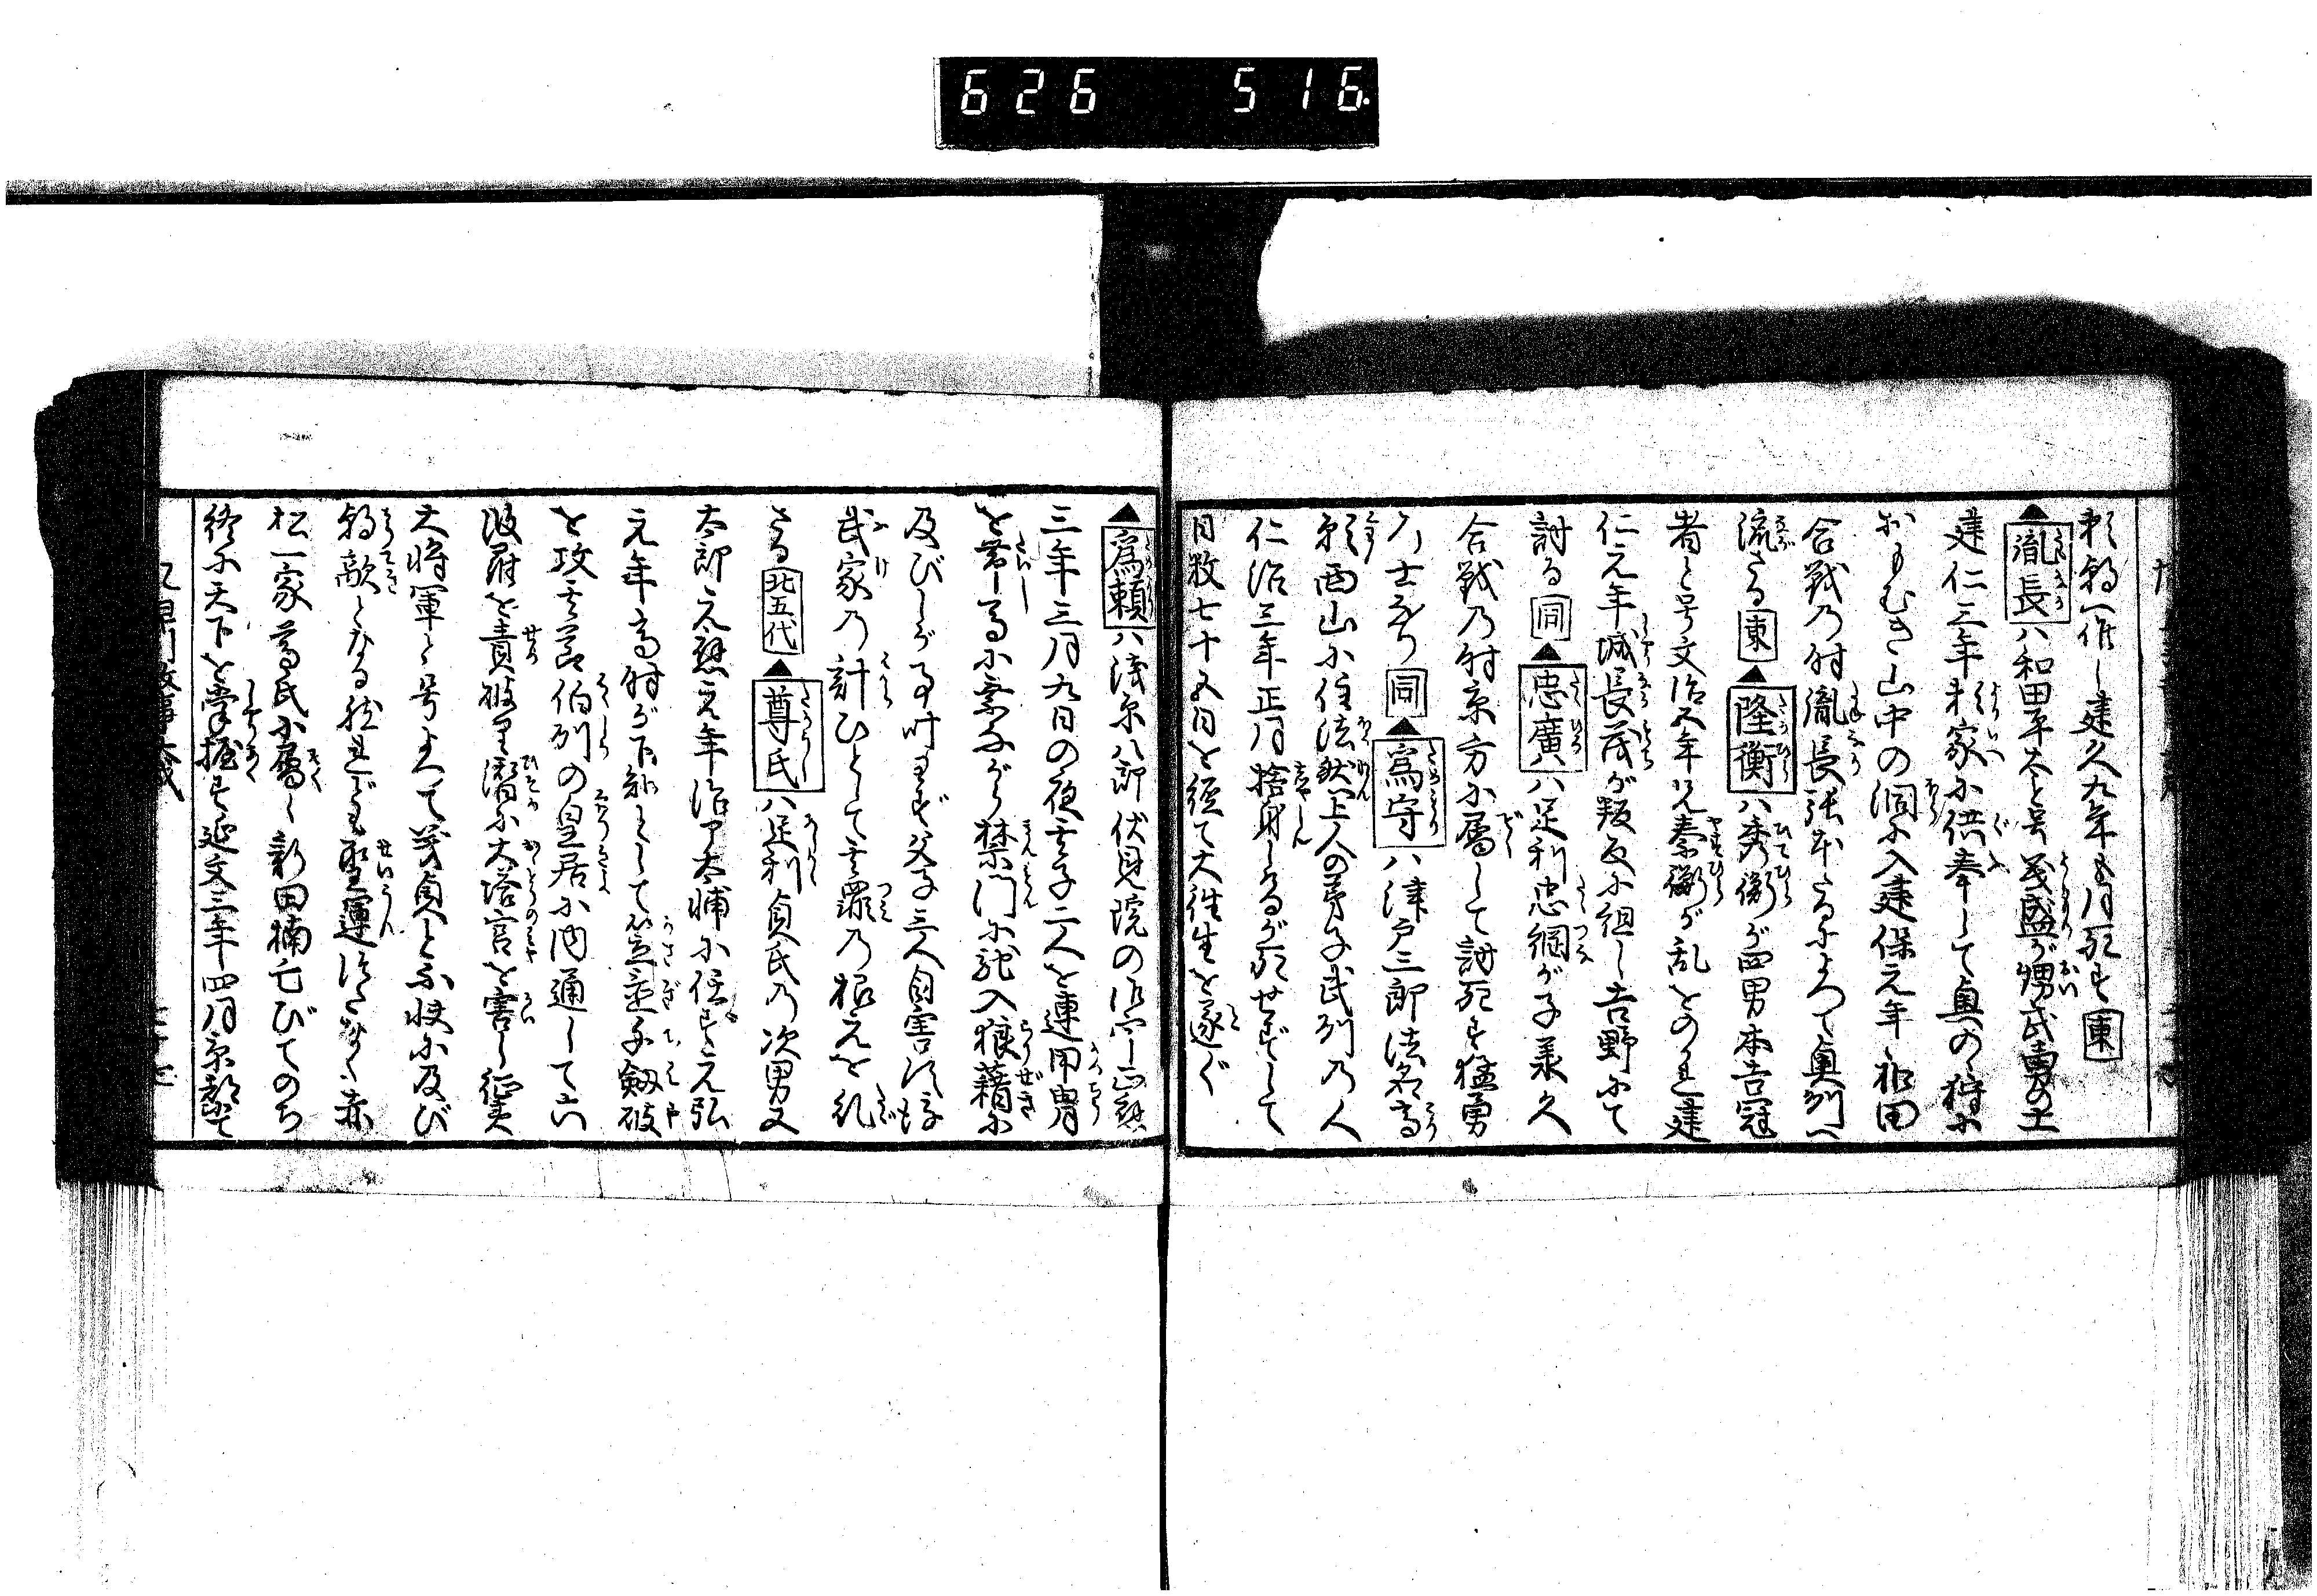 626 516
頼朝一作し建久九年五月死す東
▲胤長ハ和田平太と号義盛が甥武勇の士
建仁三年頼家に供奉して奥の狩に
おもむき山中の洞に入建保元年和田
合戦の時胤長張本たるによつて奥州へ
流さる東▲隆衡ハ秀衡が四男本吉冠
者と号文治五年兄泰衡が乱をのがれ建
仁元年城長茂が叛反に組し吉野にて
討る同▲忠廣ハ足利忠綱が子承久
合戦の時京方に属して討死す猛勇
の士なり同▲為守ハ津戸三郎法名尊
願西山に住法然上人の弟子武列の人
仁治三年正月捨身しけるが死せずして
日数七十五日を経て大往生を遂ぐ
▲為頼ハ浅原八郎伏見院の御宇正應
三年三月九日の夜其子二人を連甲冑
を帯し馬に乗ながら禁門に馳入狼藉に
及びしが事叶はず父子三人自害
武家の計ひとして其罪の根元を糺
さる北五代▲尊氏ハ足利貞氏の次男又
太郎元應元年治部太輔に任ず元弘
元年高時が下知として笠置千剱破
を攻其後伯列の皇居に内通して六
波羅を責彼より潜に大塔宮を害し征夷
大将軍と号よつて義貞と不快に及び
朝敵となる然れども聖運つたなく赤
松一家尊氏に属し新田楠亡びてのち
終に天下を掌握す延文三年四月京都にて